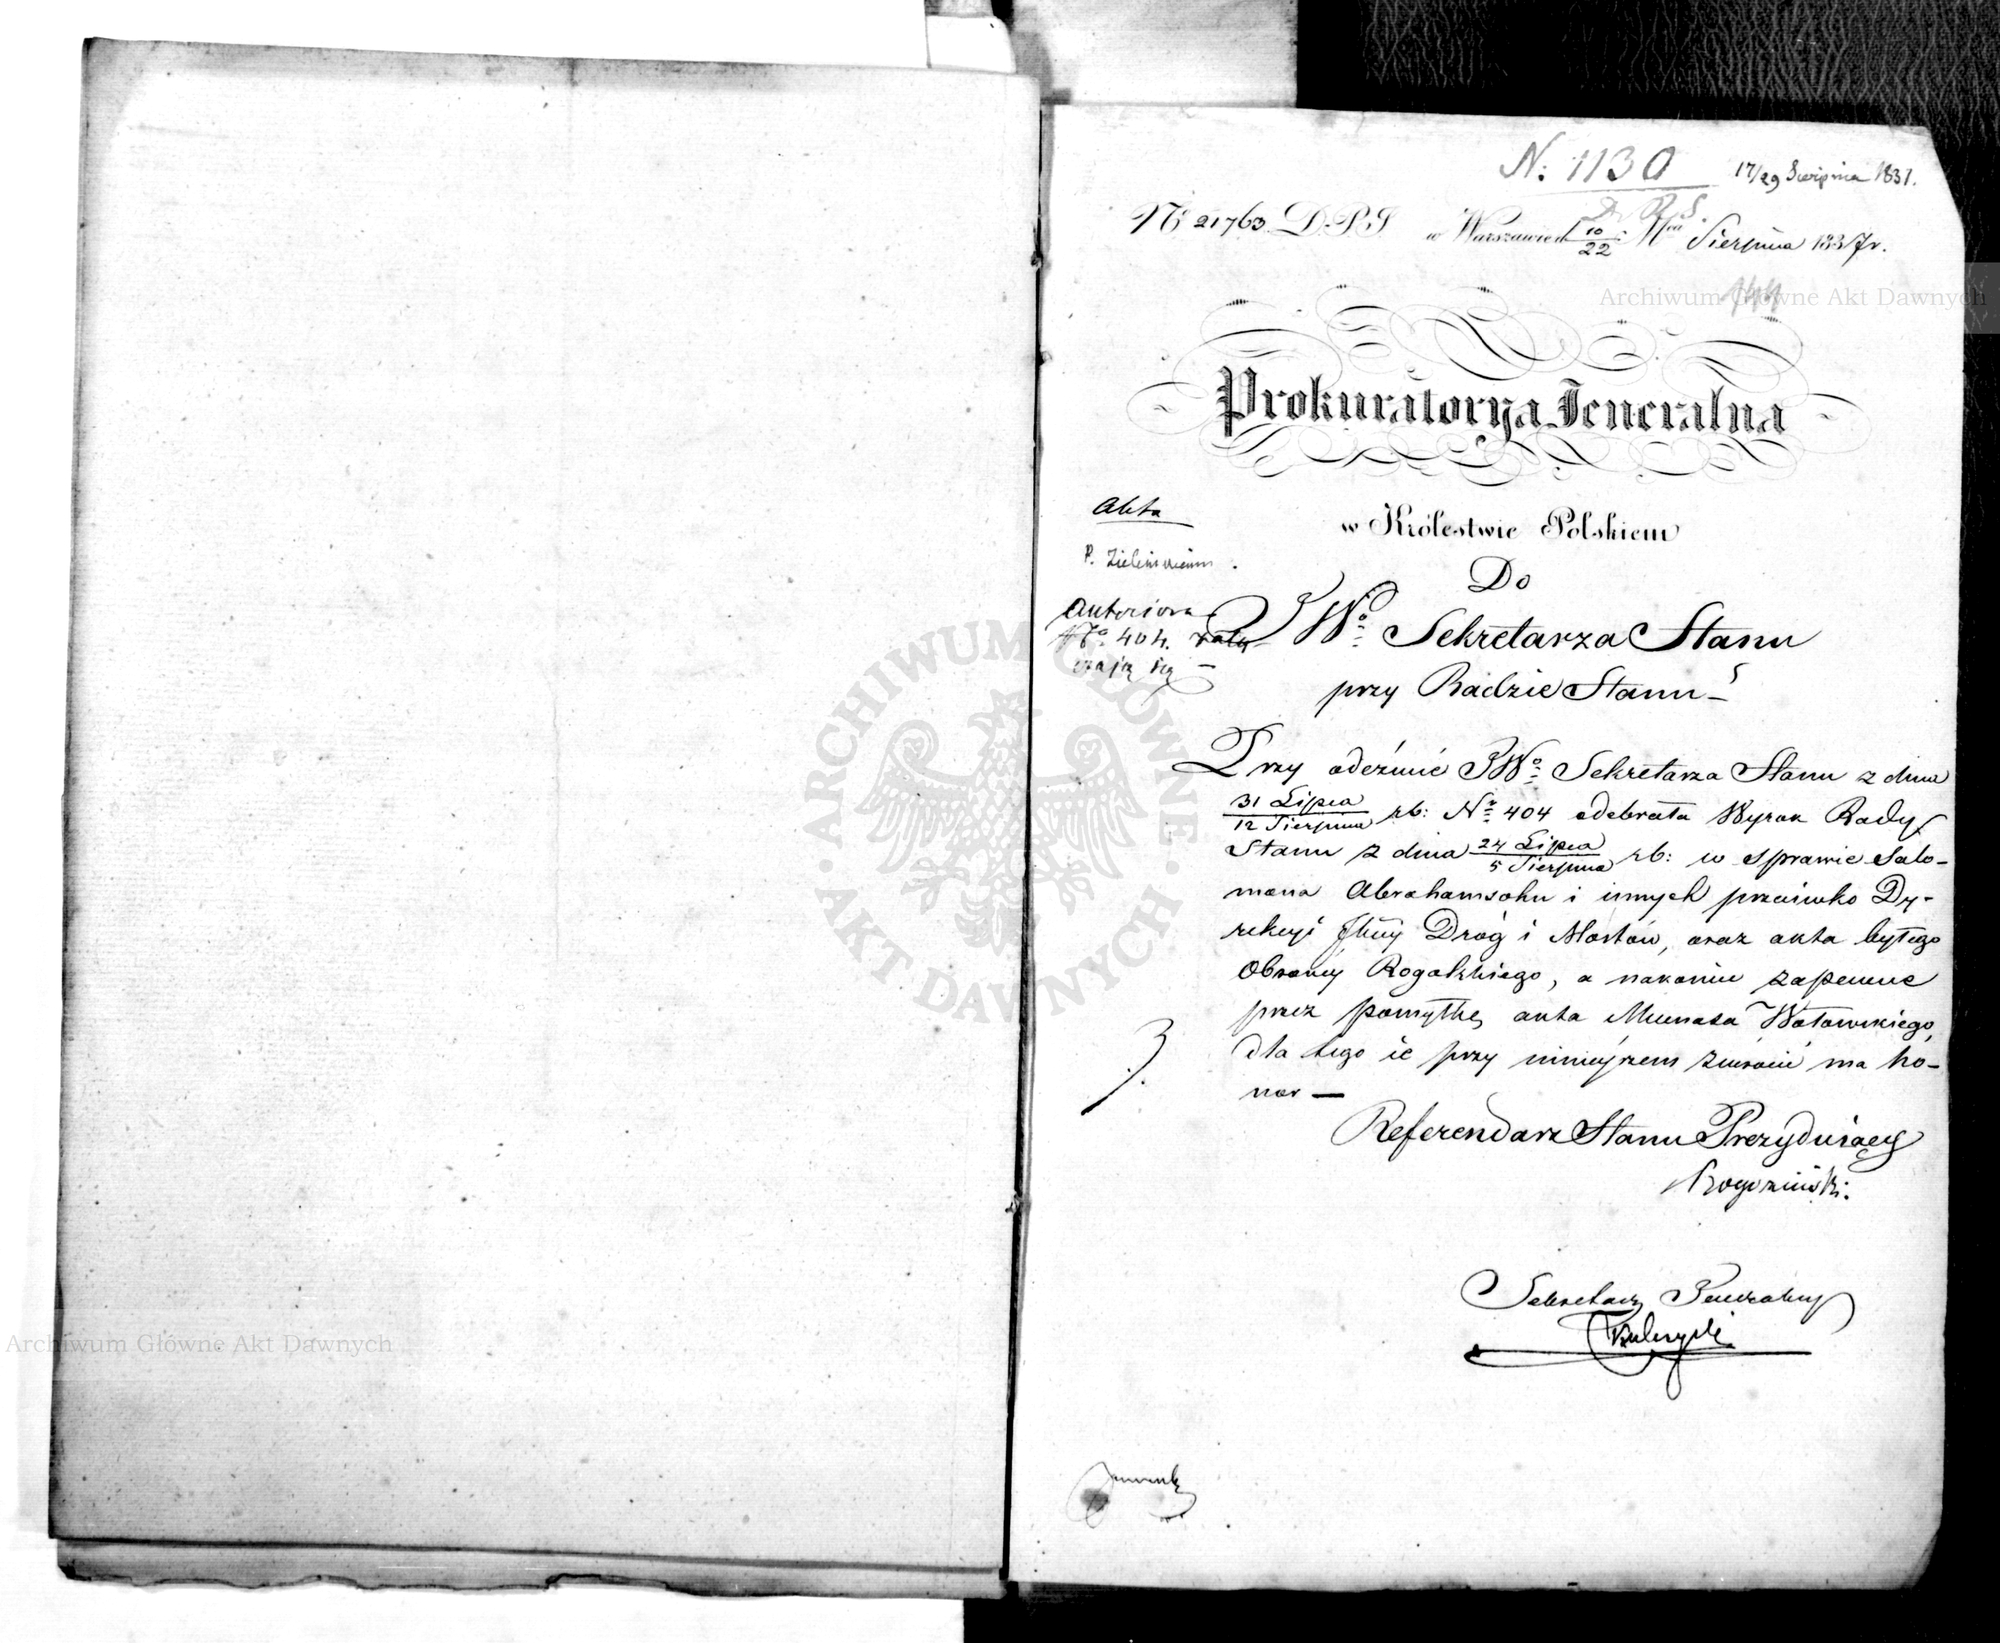 N: 1130
17/29 Sierpnia 1837.
D. R. S.
Nr 21763. D.P.S w Warszawie d 10/22 Mca Sierpnia 1837 r.
144
Archiwum Główne Akt Dawnych
Prokuratorya Jeneralna
w Królestwie Polskiem
Akta
P.
Do
Anteriora
No 404.
JWo Sekretarza Stanu
przy Radzie Stanu
Przy odezwie JWo Sekretarza Stanu z dnia
31 Lipca/12 Sierpnia rb: Nr 404 odebrała Wyrok Rady
Stanu z dnia 24 Lipca/5 Sierpnia rb: w sprawie Salo-
mona Abrahamsohn i innych przeciwko Dy-
rekcyi Jlney Dróg i Mostów, oraz akta byłego
Obrońcy Rogalskiego, a nakoniec zapewne
przez pomyłkę akta Mecenasa Wołowskiego,
dla tego ie przy niniejszem zwrócić ma ho-
nor —
Referendarz Stanu Prezyduiący
Sekretarz Jeneralny
ARCHIWUM GŁÓWNE
AKT DAWNYCH
Archiwum Główne Akt Dawnych